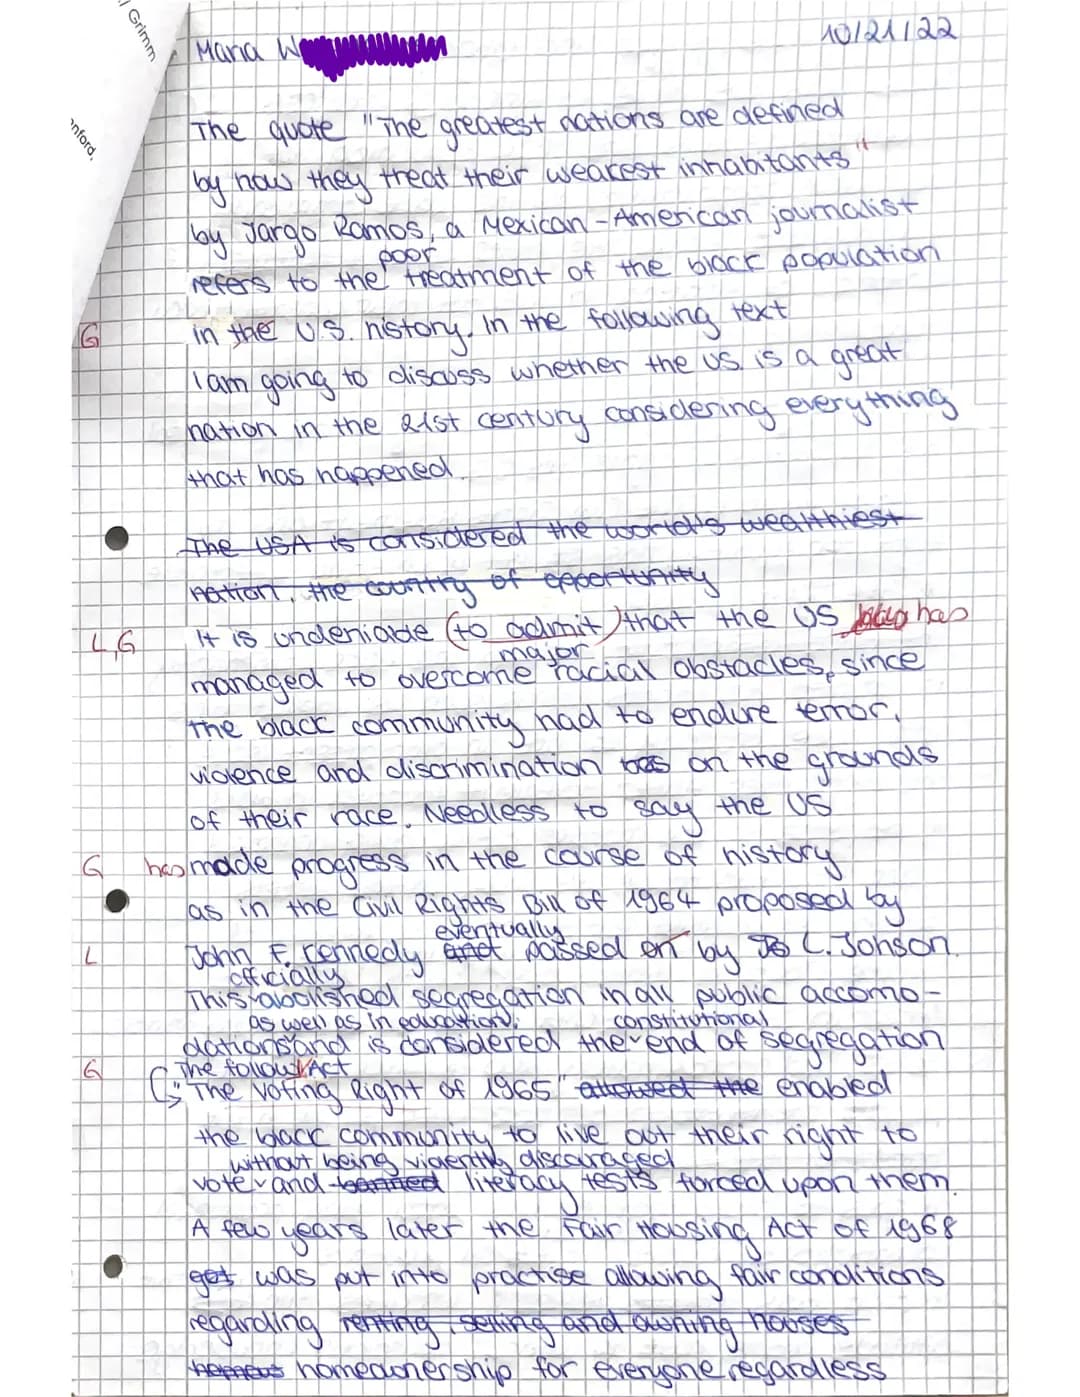 Grimm
nford.
Maria W
10/21/22
The quote "The greatest nations are defined
by how they treat their weakest inhabitants"
by Jargo Ramos, a Mexican-American journalist
poor
refers to the treatment of the black population
G in the U.S. history. In the following text
I am going to discuss whether the US. is a great
nation in the 21st century considering everything
that has happened.
The USA is considered the world's wealthiest
nation, the country of opportunity
L,G It is undeniable (to admit) that the US has
major
managed to overcome racial obstacles, since
the black community had to endure terror,
violence and discrimination on the grounds
of their race. Needless to say the US
G has made progress in the course of history
as in the Civil Rights Bill of 1964 proposed by
eventually
L John F. Kennedy and passed on by L. Jonson.
officially
This abolished segregation in all public accomo-
as well as in education, constitutional
dations and is considered the end of segregation
G The follow Act
"The Voting Right of 1965" allowed the enabled
the black community to live out their right to
without being violently discouraged
vote and banned literacy tests forced upon them.
A few years later the Fair Housing Act of 1968
get was put into practise allowing fair conditions
regarding renting, selling and owning houses
homeownership for everyone regardless